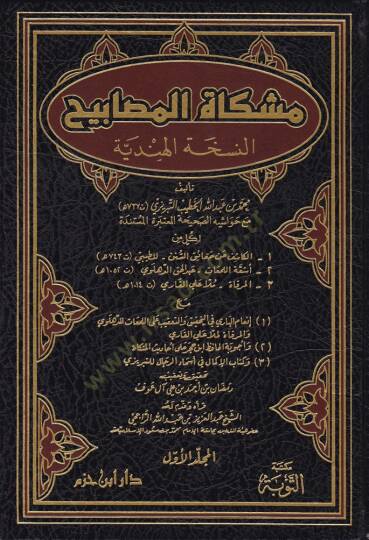 مشكاة المصابيح
النسخة الهندية
تأليف
محمد بن عبد الله الخطيب التبريزي (ت ٧٣٧هـ)
مع حواشيه الصحيحة المعتبرة المستندة
لكل من
١ - الكاشف عن حقائق السنن - للطيبي (ت ٧٤٣هـ)
٢ - أشعة اللمعات - عبد الحق الدهلوي (ت ١٠٥٢هـ)
٣ - المرقاة - ملا علي القاري (ت ١٠١٤هـ)
مع
(١) إنعام الباري في التحقيق والتعقيب على اللمعات للدهلوي
والمرقاة لملا علي القاري
(٢) وأجوبة الحافظ ابن حجر على أحاديث المشكاة
(٣) وكتاب الإكمال في أسماء الرجال للتبريزي
تحقيق وتعقيب
رمضان بن أحمد بن علي آل عوف
قرأه وقدم له
الشيخ عبد العزيز بن عبد الله الراجحي
المجلد الأول
مكتبة
التوبة
دار ابن حزم